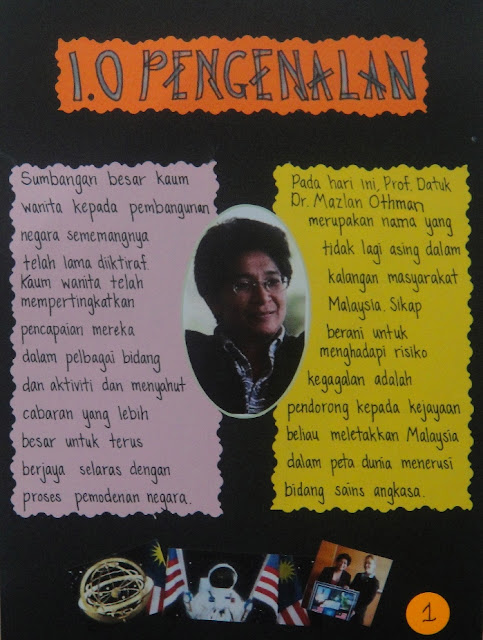 1.0 PENGENALAN
Sumbangan besar kaum
wanita kepada pembangunan
negara sememangnya
telah lama diiktiraf.
Kaum wanita telah
mempertingkatkan
pencapaian mereka
dalam pelbagai bidang
dan aktiviti dan menyahut
cabaran yang lebih
besar untuk terus
berjaya selaras dengan
proses pemodenan negara.
Pada hari ini, Prof. Datuk
Dr. Mazlan Othman
merupakan nama yang
tidak lagi asing dalam
kalangan masyarakat
Malaysia. Sikap
berani untuk
menghadapi risiko
kegagalan adalah
pendorong kepada kejayaan
beliau meletakkan Malaysia
dalam peta dunia menerusi
bidang sains angkasa.
1